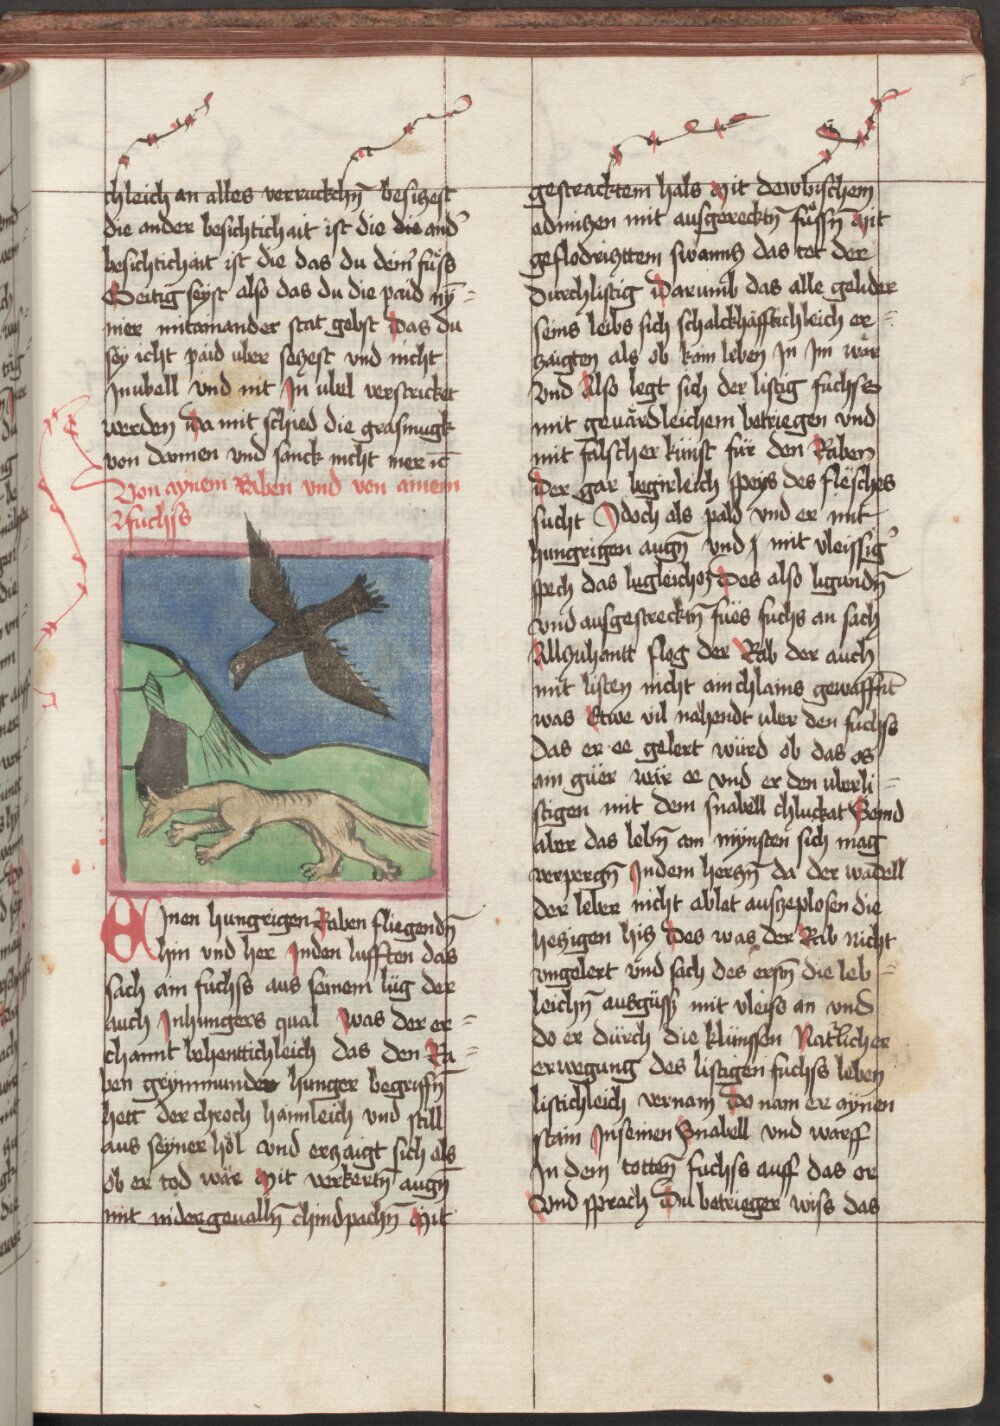 chleich an alles verruckchn̄ besiczest
die ander besichtichait ist die die and'
besichtichait ist die das du dein' fuͤss
Geitig seyst also das du die paid ny̅=
mer mitainander stat gebst Das du
sey icht paid uber seczest vnd nicht
Jnubell vnd mit Jn ubel verstricket
werden Da mit schied die grasmugk
von dannen vnd sanck nicht mer ic̄
Von aynem Raben vnd von ainem
fuchss
EJnen hungrigen Raben fliegendn̄
hin vnd her Jnden lufften das
sach ain fuchss aus seinem lüg der
auch Jnhungers qual Was der er=
channt behenttichleich das den Ra=
ben grymmunder hunger begryffn̄
hett der chroch hannleich vnd still
aus seyner hol vnd erzaigt sich als
ob er tod wär Mit verkertn̄ augn̄
mit nidergevalln̄ chindpachn̄ Mit
gestracktem hals Mit dewbischem
adnuczen mit ausgerecktn̄ füssn̄ Mit
geflodrizttem swanncz das tet der
Durchlistig Darumb das alle gelider
seins leibs sich schalckhäfftichleich er=
zaigten als ob kain leben Jn Jm wär
Vnd Also legt sich der listig fuchsse
mit geuärdleichem betriegen vnd
mit falscher künst für den Raben
Der gar begirleich speys des flësches
sucht Jdoch als pald vnd er mit
hungrigen augn̄ vnd mit vleissig'
spech das lugleichen Des also ligundn̄
vnd ausgestrecktn̄ fües fuchs an sach
Allzuhantt flog der Rab der auch
mit listen nicht ainchlains gewaffnt̄
was Etwe vil nahendt uber den fuchss
Das er ee gelert würd ob das os
ain guer wär ee vnd er den uberli=
stigen mit dem snabell chluckat Seind
aber das lebn̄ am mynsten sich mag
verpergn̄ Jndem herczn̄ da der wadell
der leber nicht ablet auszeplosen die
heczigen hicz Des was der Rab nicht
vngelert vnd sach des ersn̄ die leb=
leichn̄ ausgüss mit vleiss an vnd
do er dürch die klunssen Natlicher
erwegung des listigen fuchss leben
listichleich vernam Do nam er aynen
stain Jnseinen Snabell vnd warff
Jn dem totten̄ fuchss auff das er
Vnd sprach Du betrieger wiss das